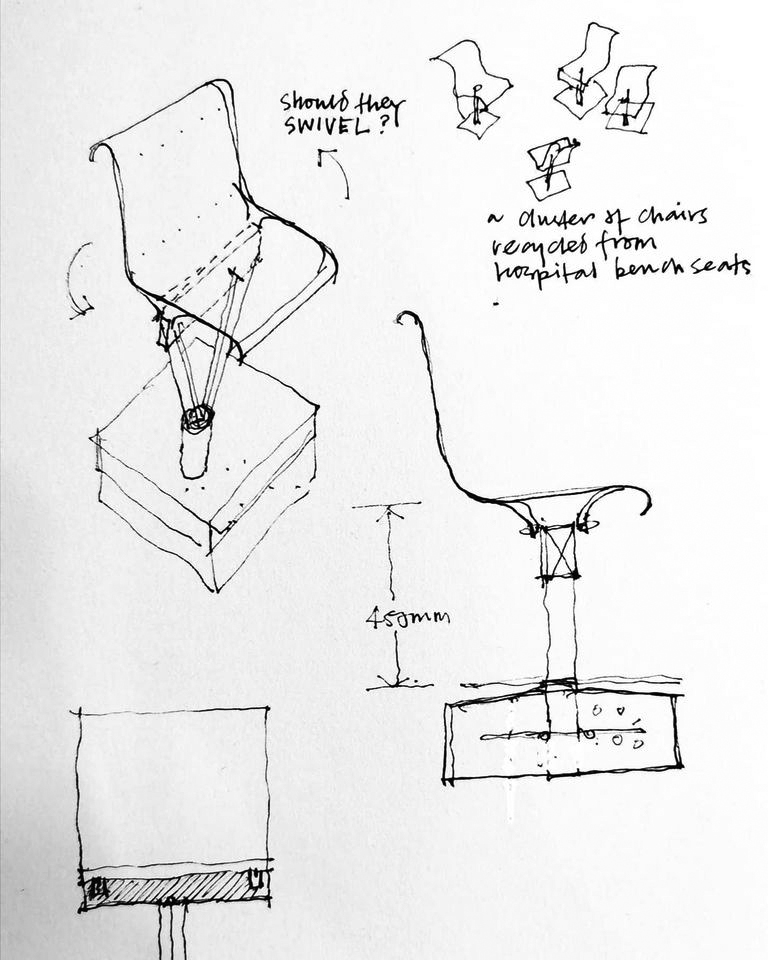 Should they
SWIVEL ?
~ cluster of chairs
recycled from
hospital bench seats
450mm